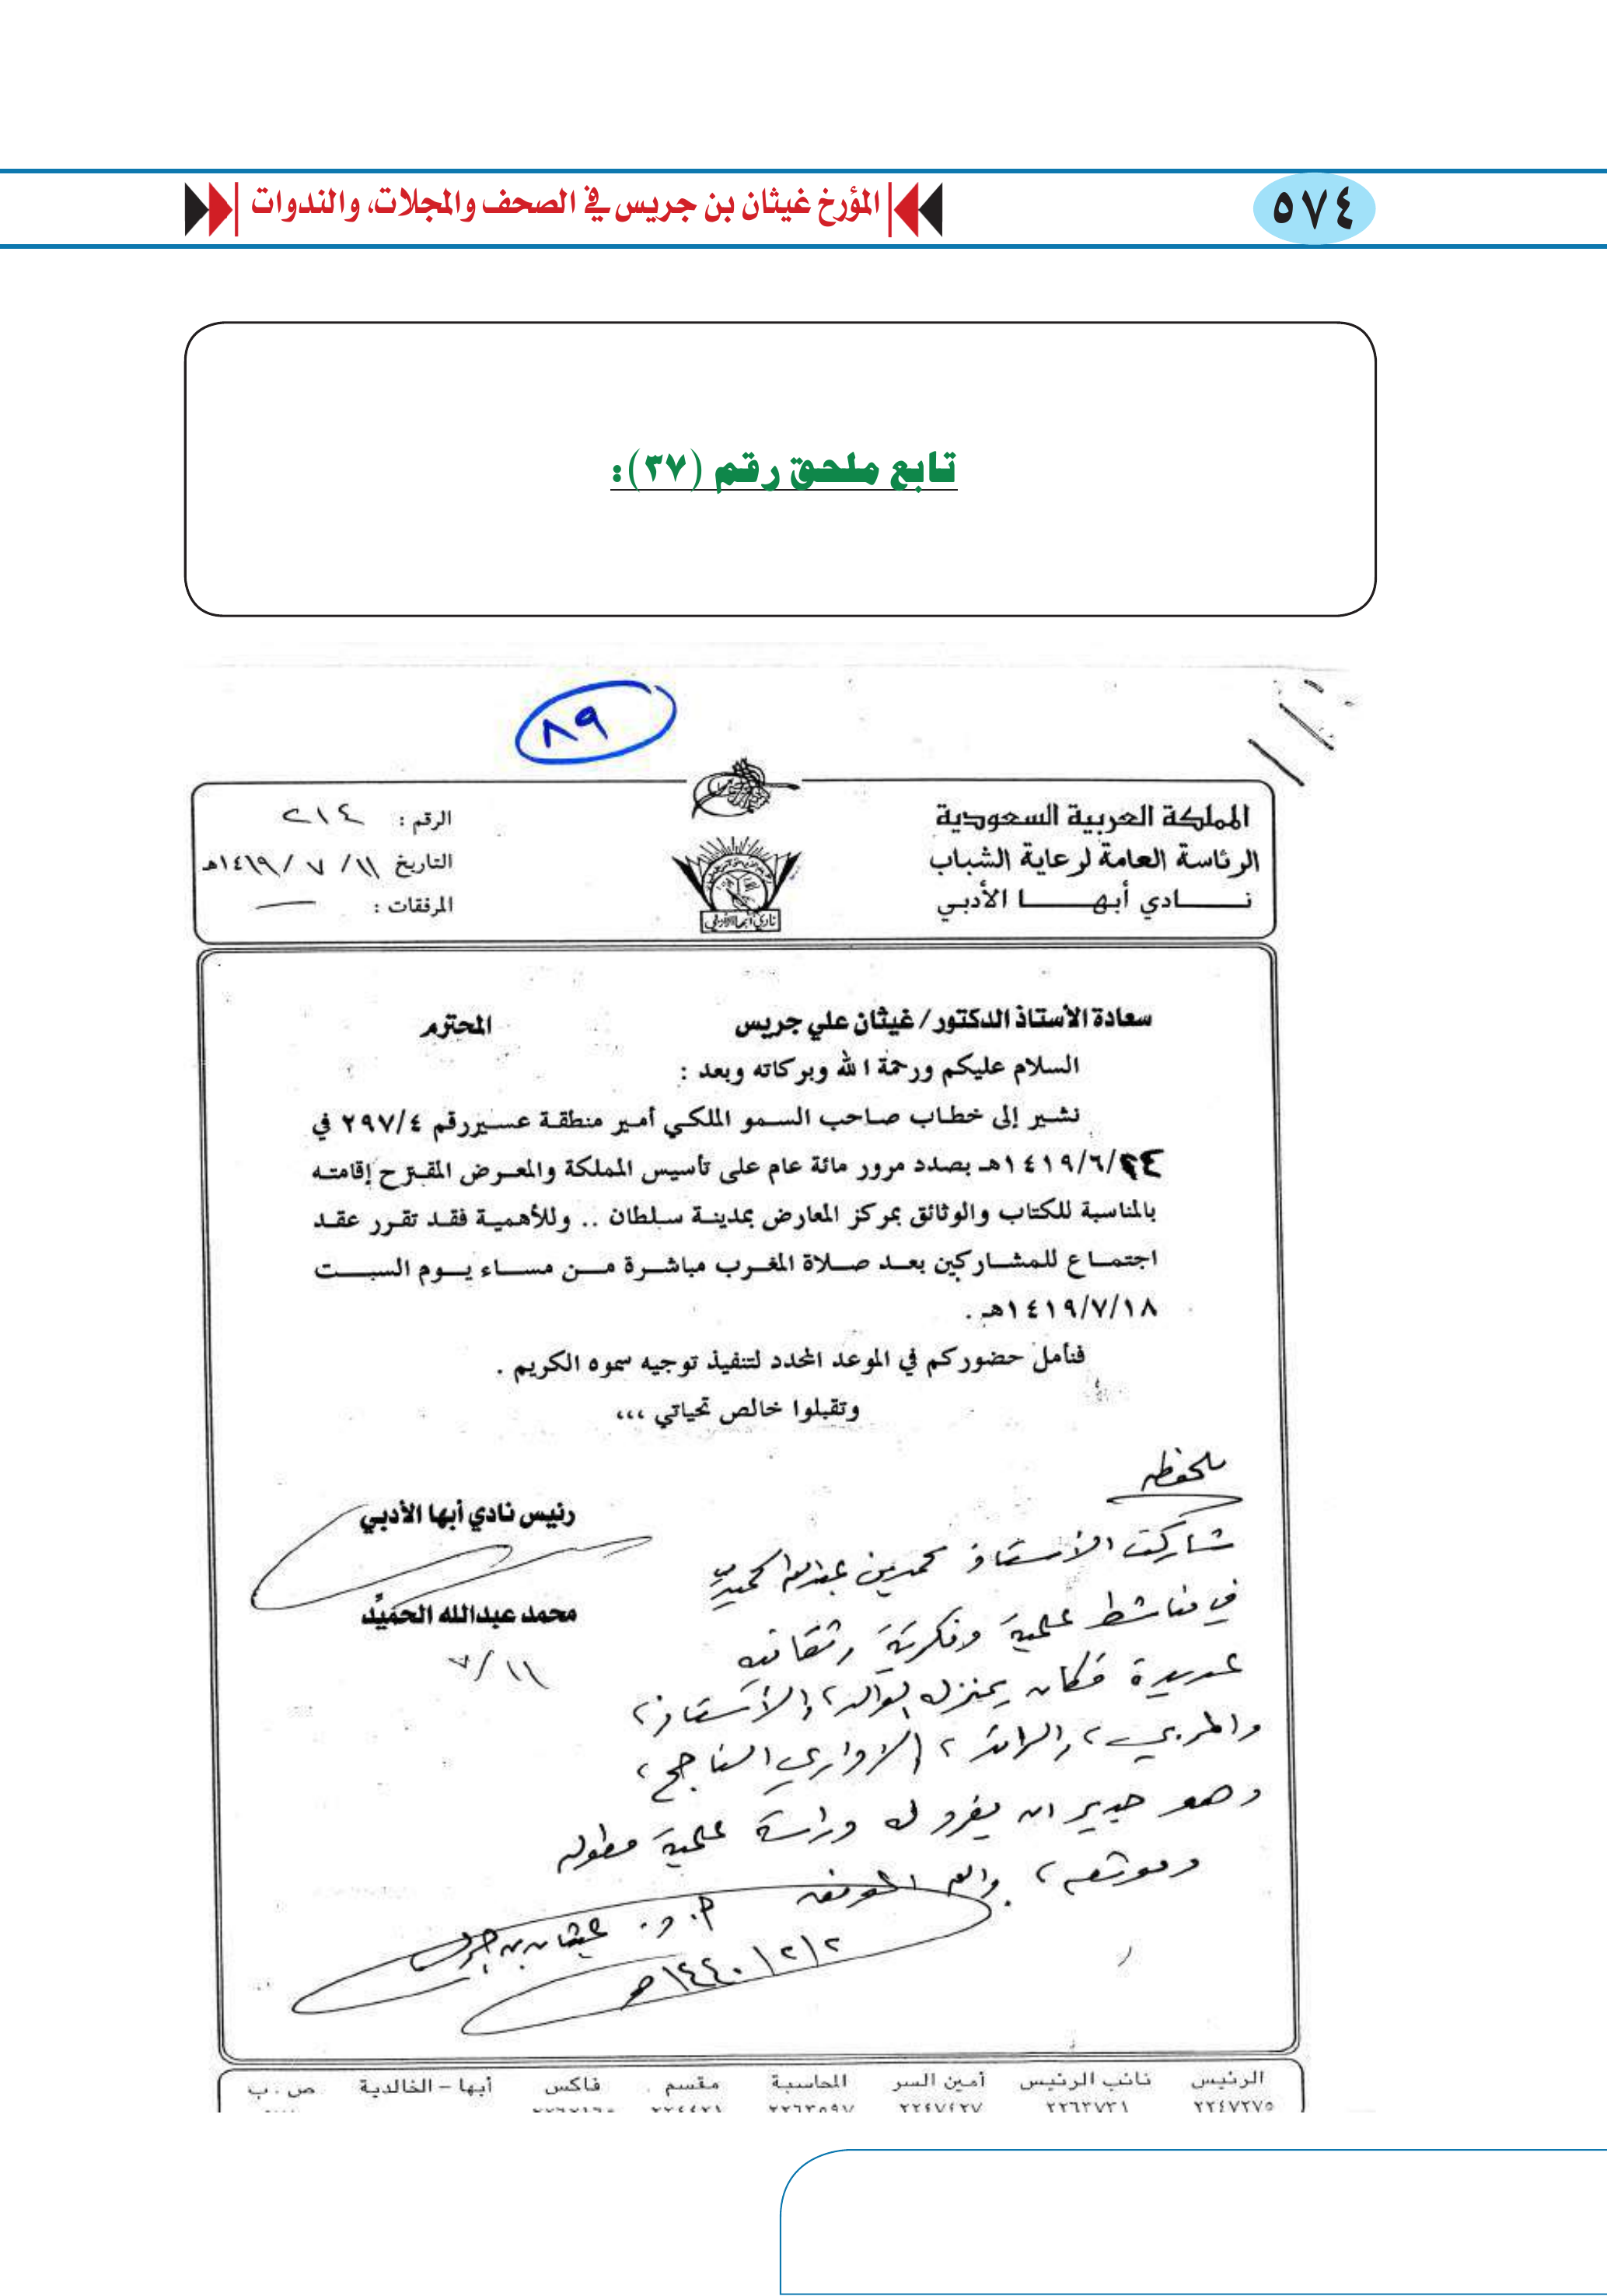 ٥٧٤
المؤرخ غيثان بن جريس في الصحف والمجلات، والندوات
تابع ملحق رقم (٣٧):
٨٩
المملكة العربية السعودية
الرئاسة العامة لرعاية الشباب
نـــادي أبهـــا الأدبي
الرقم : ٢١٤
التاريخ ١١/ ٧ /١٤١٩هـ
المرفقات : —
نادي أبها الأدبي
سعادة الأستاذ الدكتور/ غيثان علي جريس المحترم
السلام عليكم ورحمة الله وبركاته وبعد :
نشير إلى خطاب صاحب السمو الملكي أمير منطقة عسير رقم ٢٩٧/٤ في
١٤١٩/٦/٢٤هـ بصدد مرور مائة عام على تأسيس المملكة والمعرض المقترح إقامته
بالمناسبة للكتاب والوثائق بمركز المعارض بمدينة سلطان .. وللأهمية فقد تقرر عقد
اجتماع للمشاركين بعد صلاة المغرب مباشرة من مساء يوم السبت
١٤١٩/٧/١٨هـ .
فنأمل حضوركم في الموعد المحدد لتنفيذ توجيه سموه الكريم .
وتقبلوا خالص تحياتي ،،،
رئيس نادي أبها الأدبي
محمد عبدالله الحميِّد
٧/١١
ملحوظه
شاركت الأستاذ محمد بن عبدالله الحميد
في مناشط علمية وفكرية وثقافيه
عديدة فكان بمنزلة الوالد، والأستاذ،
والمربي، والرائد، الإداري الناجح،
وهو جدير ان يفرد له دراسة علمية مطوله
وموثقه، والله الموفق
أ. د. غيثان بن جريس
١٤٤٠/٢/٢هـ
الرئيس نائب الرئيس أمين السر المحاسبة مقسم فاكس أبها – الخالدية ص . ب
٢٢٤٧٢٧٥ ٢٢٦٣٧٣١ ٢٢٤٧٤٢٧ ٢٢٦٣٥٩٧